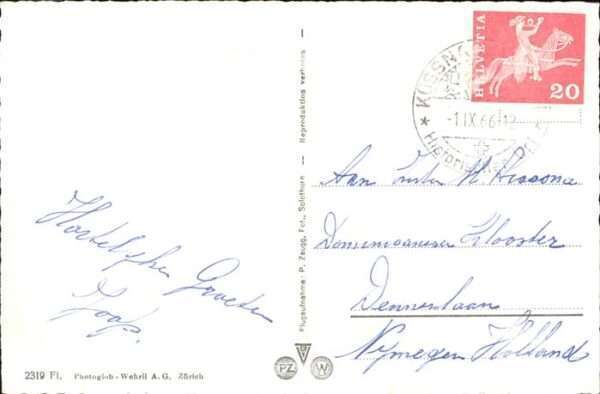 HELVETIA
20
KÜSSN
-1.IX.66-12
Hartelijke Groeten
Joop.
Aan Zuster M.
Dominicanessen Klooster
Dennenlaan
Nijmegen Holland
Reproduktion verboten
Flugaufnahme: P. Zaugg, Fot., Solothurn
PZ
W
2319 Fl. Photoglob-Wehrli A.G. Zürich